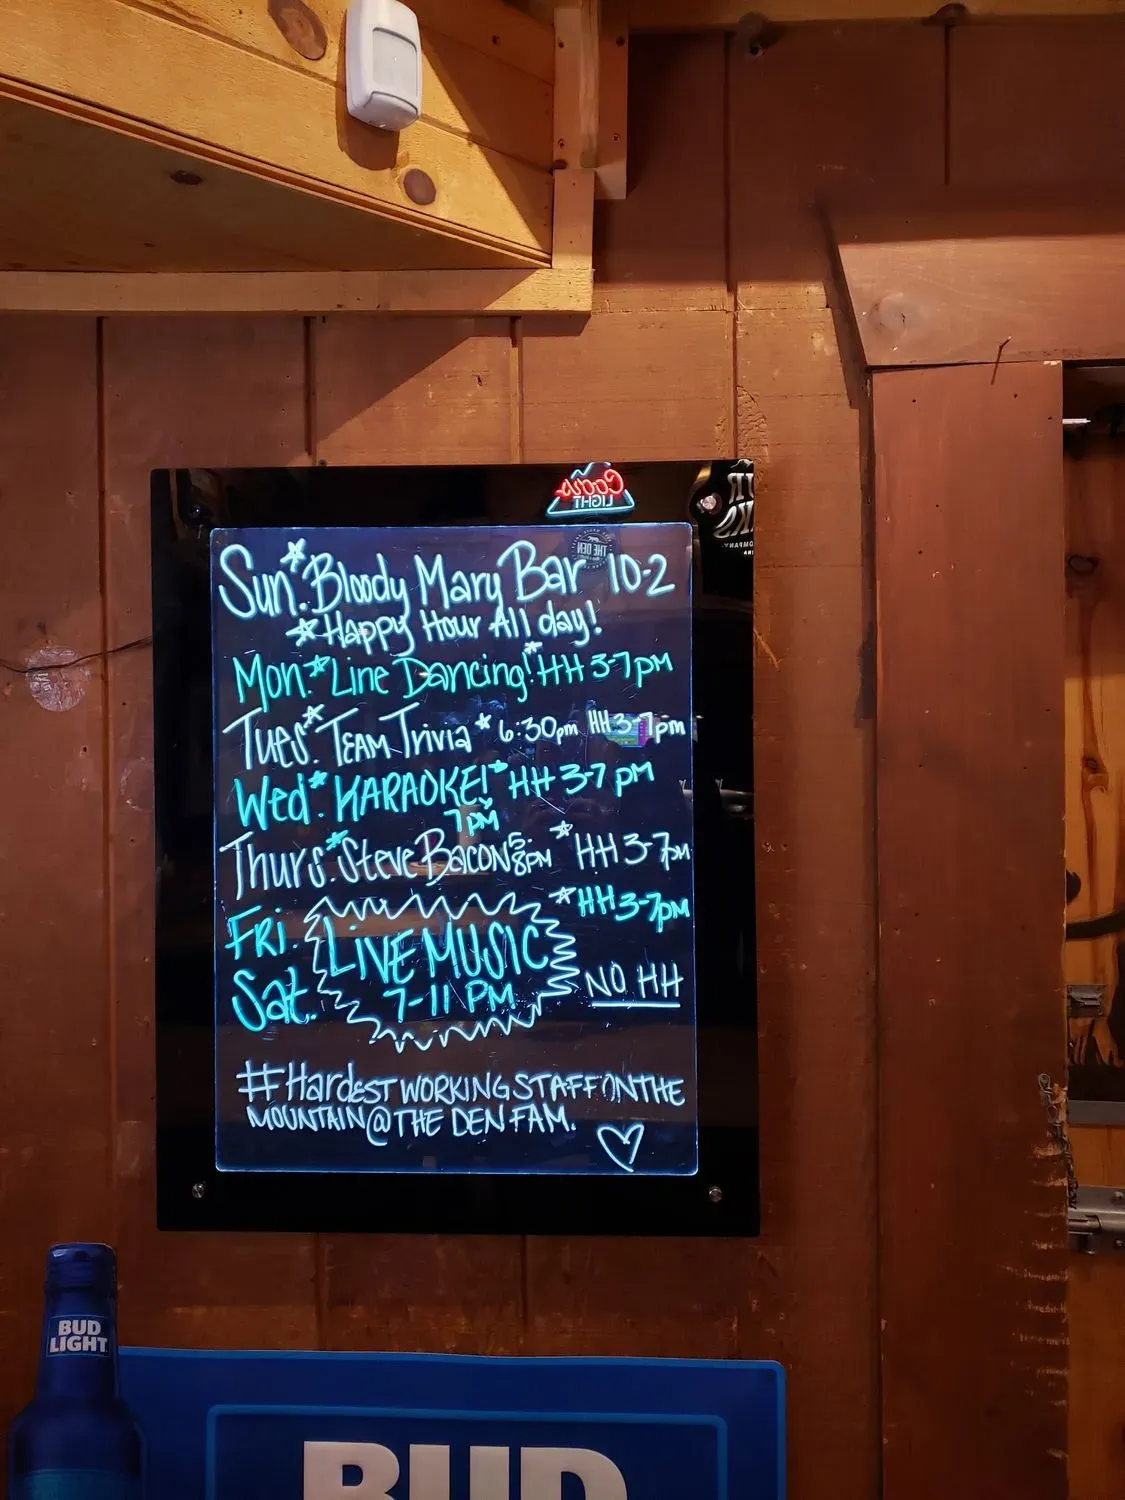 Coors
LIGHT
THE DEN
COMPANY
Sun. Bloody Mary Bar 10-2
Happy Hour All day!
Mon. Line Dancing! HH 3-7pm
Tues. TEAM Trivia 6:30pm HH 3-7pm
Wed. KARAOKE! HH 3-7 pm
7PM
Thurs. Steve BACON 5-8PM HH 3-7pm
HH 3-7pm
Fri. LIVE MUSIC
Sat. 7-11 PM NO HH
#HardEST WORKING STAFF ON THE
MOUNTAIN @ THE DEN FAM.
BUD
LIGHT
BUD